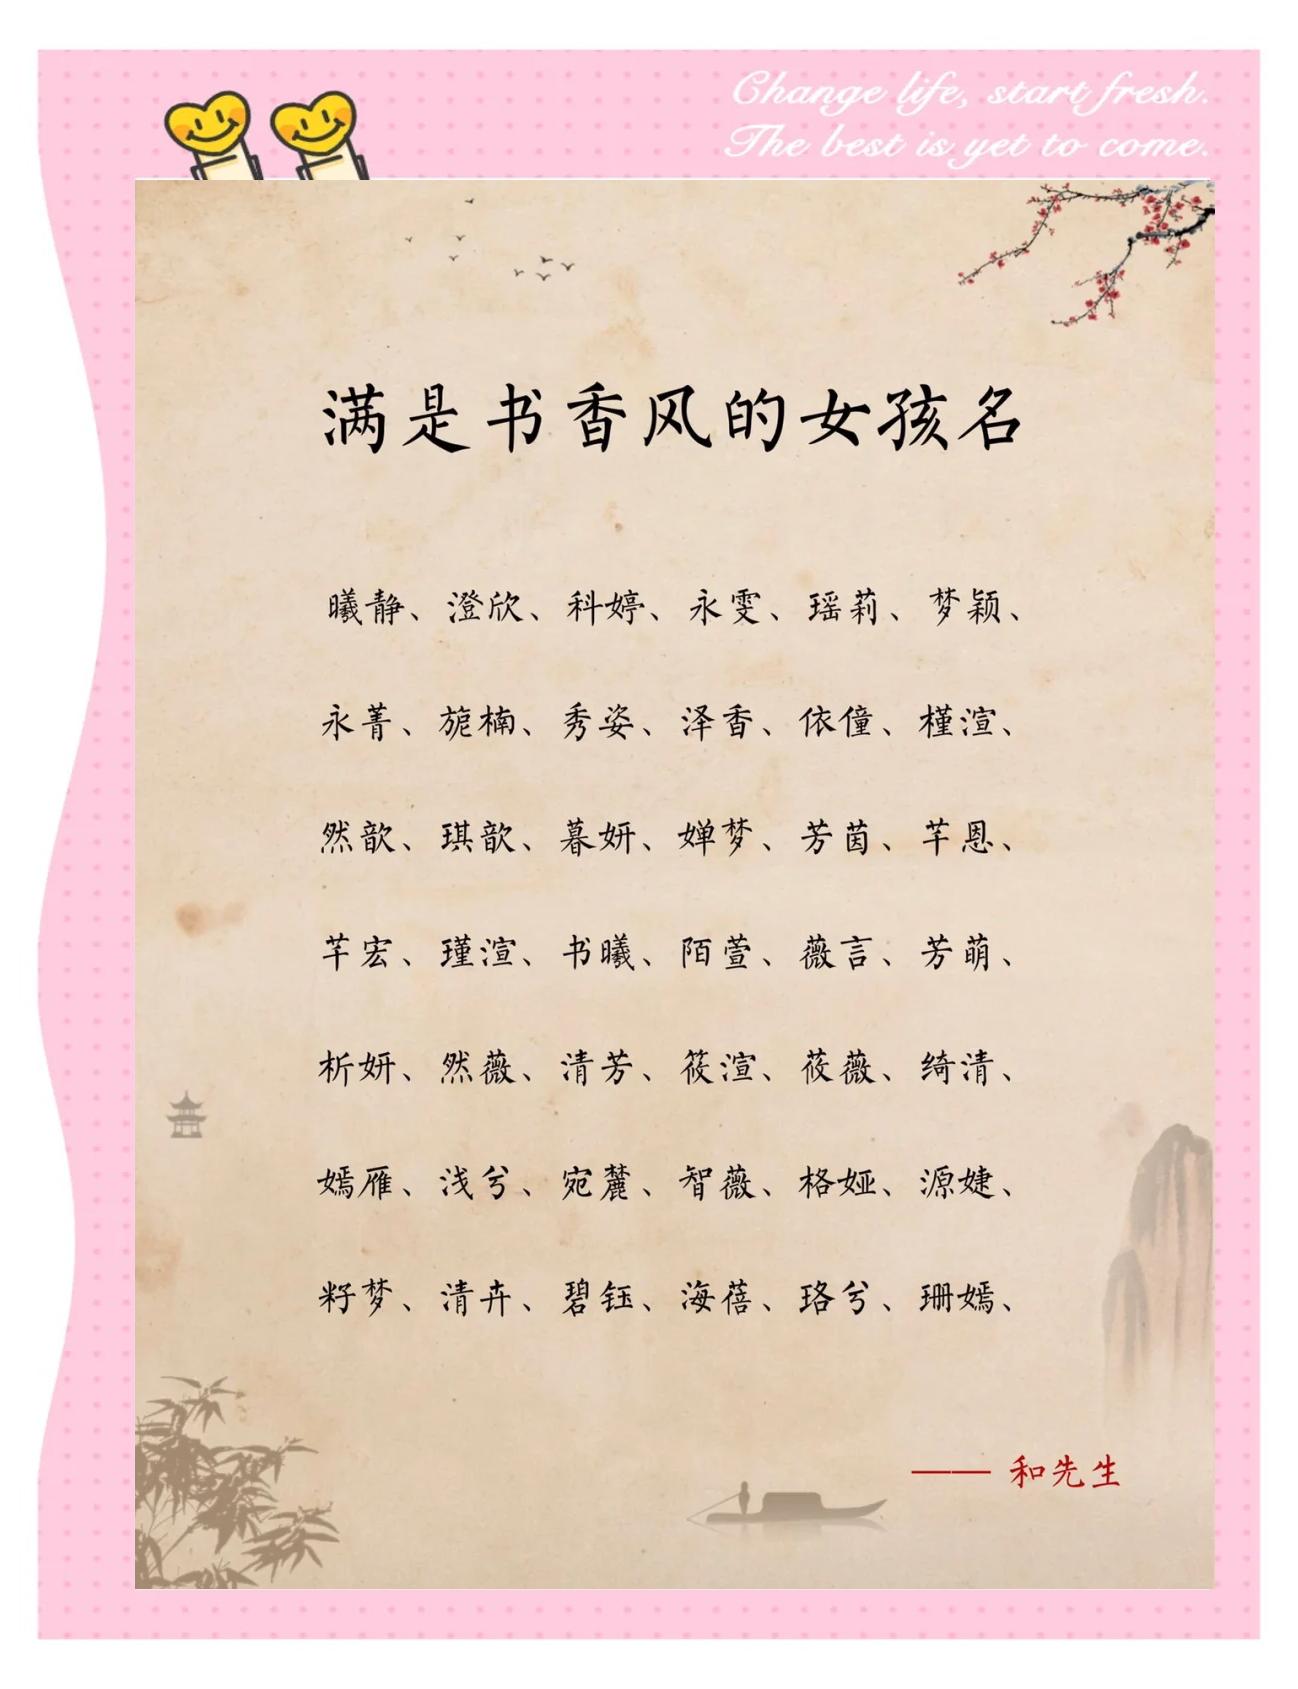 Change life, start fresh.
The best is yet to come.
满是书香风的女孩名
曦静、澄欣、科婷、永雯、瑶莉、梦颖、
永菁、旎楠、秀姿、泽香、依僮、槿渲、
然歆、琪歆、暮妍、婵梦、芳茵、芊恩、
芊宏、瑾渲、书曦、陌萱、薇言、芳萌、
析妍、然薇、清芳、筱渲、莜薇、绮清、
嫣雁、浅兮、宛麓、智薇、格娅、源婕、
籽梦、清卉、碧钰、海蓓、珞兮、珊嫣、
—— 和先生